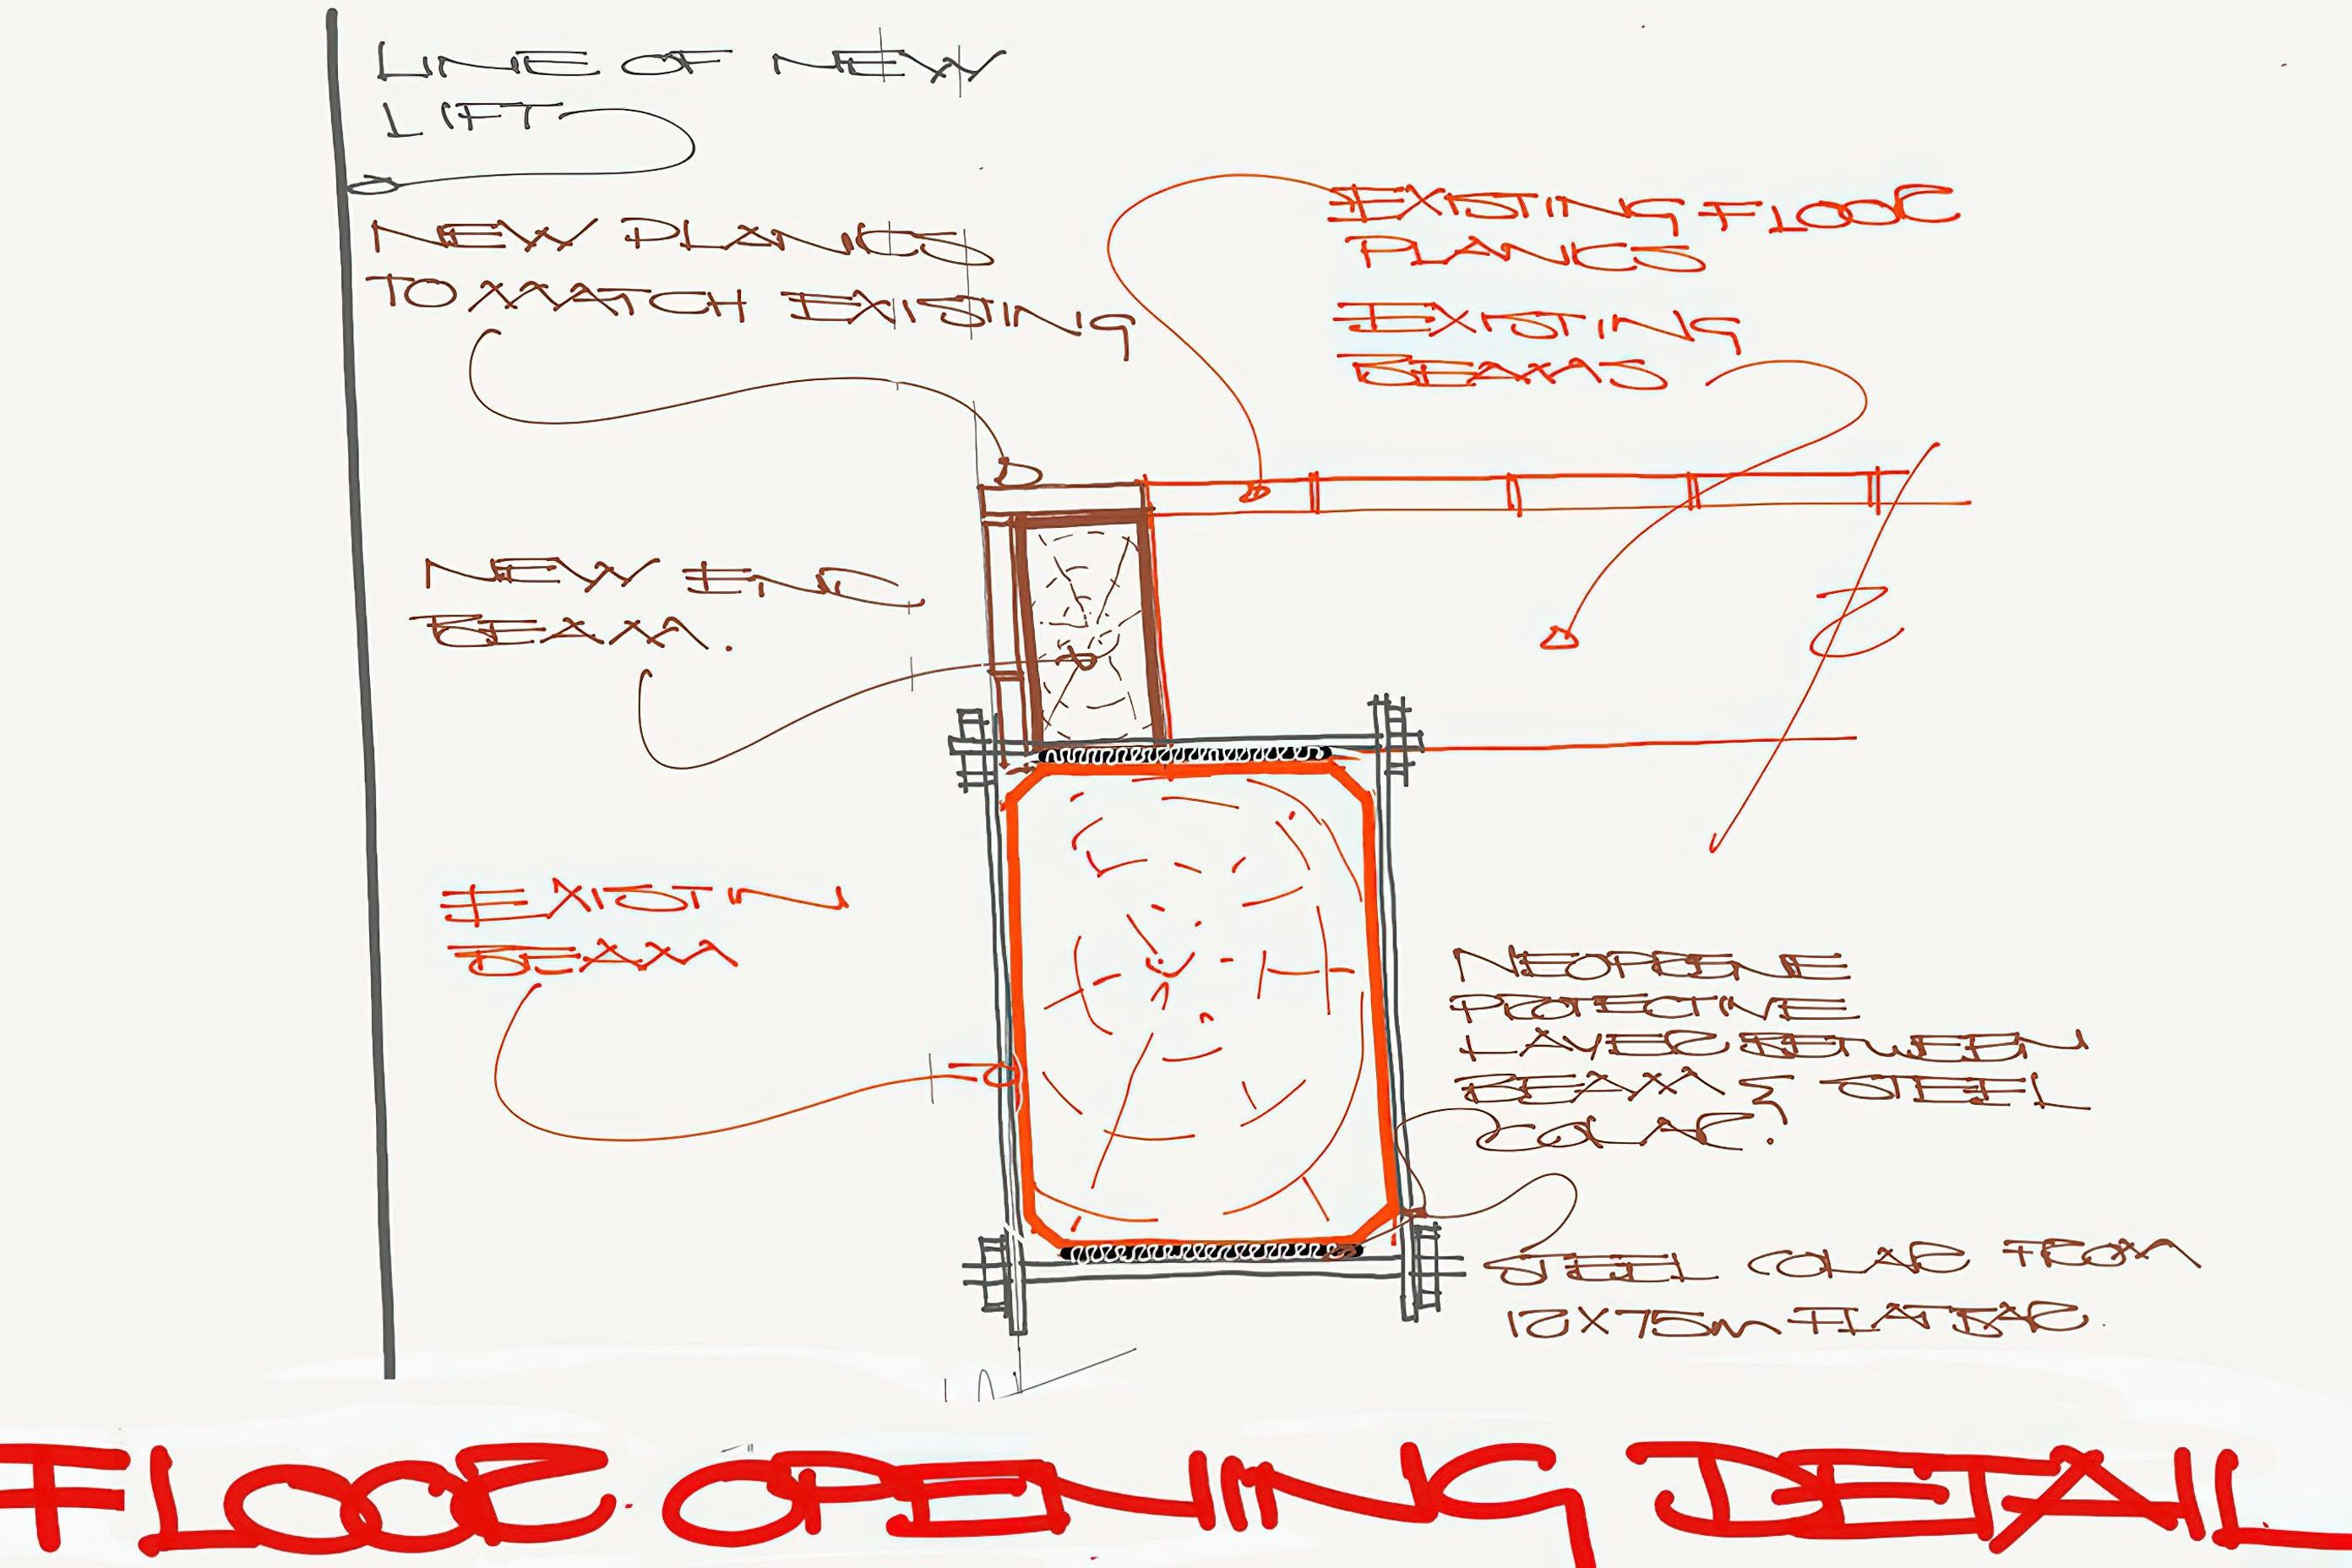 LINE OF NEW
LIFT
NEW PLANKS
TO MATCH EXISTING
EXISTING FLOOR
PLANKS
EXISTING
BEAMS
NEW END
BEAM.
EXISTIN
BEAM
NEOPRENE
PROTECTIVE
LAYER BETWEEN
BEAM & STEEL
COLAR.
STEEL COLAR FROM
12X75m FLATBAR.
FLOOR OPENING DETAIL